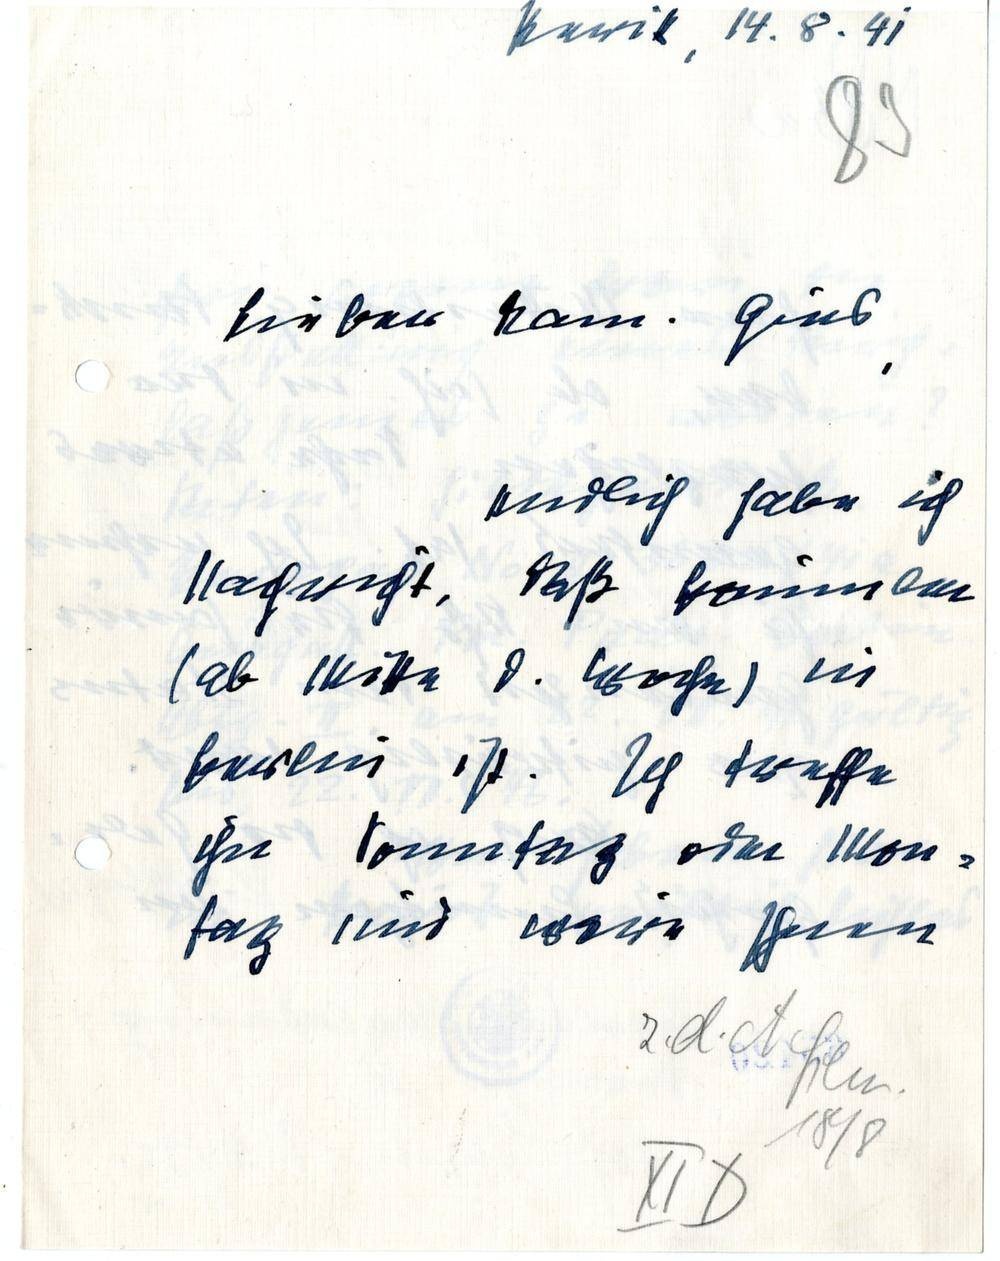 14.8.41
83
Lieber Kam.
endlich habe ich
Nachricht, daß Bäumler
(ab Mitte d. Woche) in
Berlin ist. Ich treffe
ihn Sonntag oder Mon-
tag und werde Ihnen
z.d.A
18/8
XI D